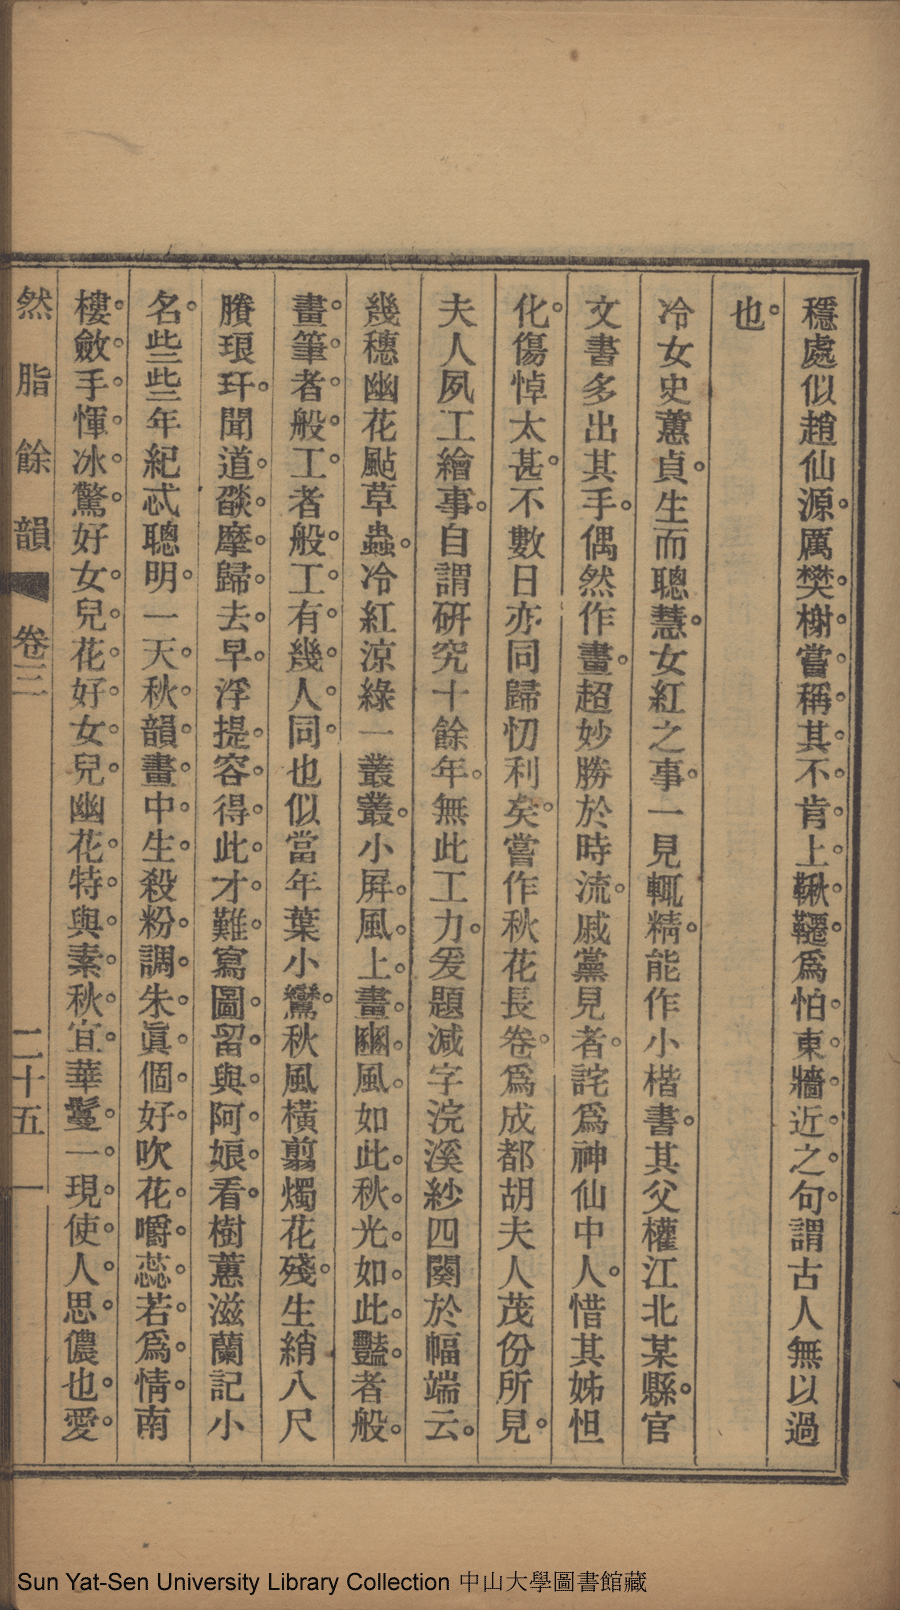 穩處似趙仙源。厲樊榭。嘗稱。其。不。肯。上。鞦。韆。爲怕。東。牆。近。之。句。謂古人無以過
也。
冷女史蕙貞。生而聰慧。女紅之事。一見輒精。能作小楷書。其父權江北某縣。官
文書多出其手。偶然作畫。超妙勝於時流。戚黨見者。詫爲神仙中人。惜其姊怛
化。傷悼太甚。不數日亦同歸忉利矣。嘗作秋花長卷。爲成都胡夫人茂份所見。
夫人夙工繪事。自謂研究十餘年。無此工力。爰題減字浣溪紗四闋於幅端云。
幾穗幽花颭草蟲。冷紅涼綠一叢叢。小屏。風。上。畫。豳。風。如此。秋。光。如。此。豔。者般。
畫。筆。者。般。工。者般。工。有。幾。人。同。也似當年葉小鸞。秋風橫翦燭花殘。生綃八尺
賸琅玕。聞道。燄。摩。歸。去。早。浮提。容。得。此。才。難。寫圖。留。與。阿。娘。看。樹蕙滋蘭記小
名。些些年紀忒聰明。一天。秋。韻。畫。中。生。殺粉。調。朱。眞。個。好。吹花。嚼。蕊。若。爲。情。南
樓。斂。手。惲。冰。驚。好女。兒。花。好。女。兒。幽花。特。與。素。秋。宜。華鬘。一。現。使。人。思。儂也。愛。
然脂餘韻 卷三 二十五
Sun Yat-Sen University Library Collection 中山大學圖書館藏